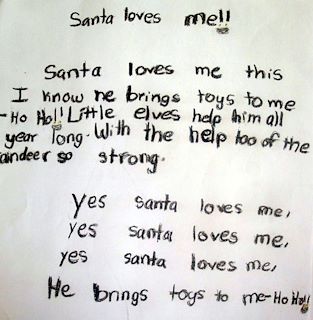 Santa loves me!!
Santa loves me this
I know he brings toys to me
-Ho Ho!! Little elves help him all
year long. With the help too of the
aindeer so strong.
Yes santa loves me,
yes santa loves me,
yes santa loves me,
He brings toys to me-Ho Ho!!